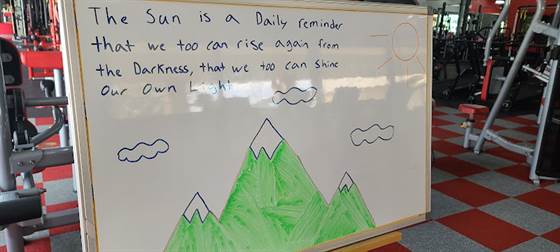 The Sun is a Daily reminder
that we too can rise again from
the Darkness, that we too can shine
Our Own Light